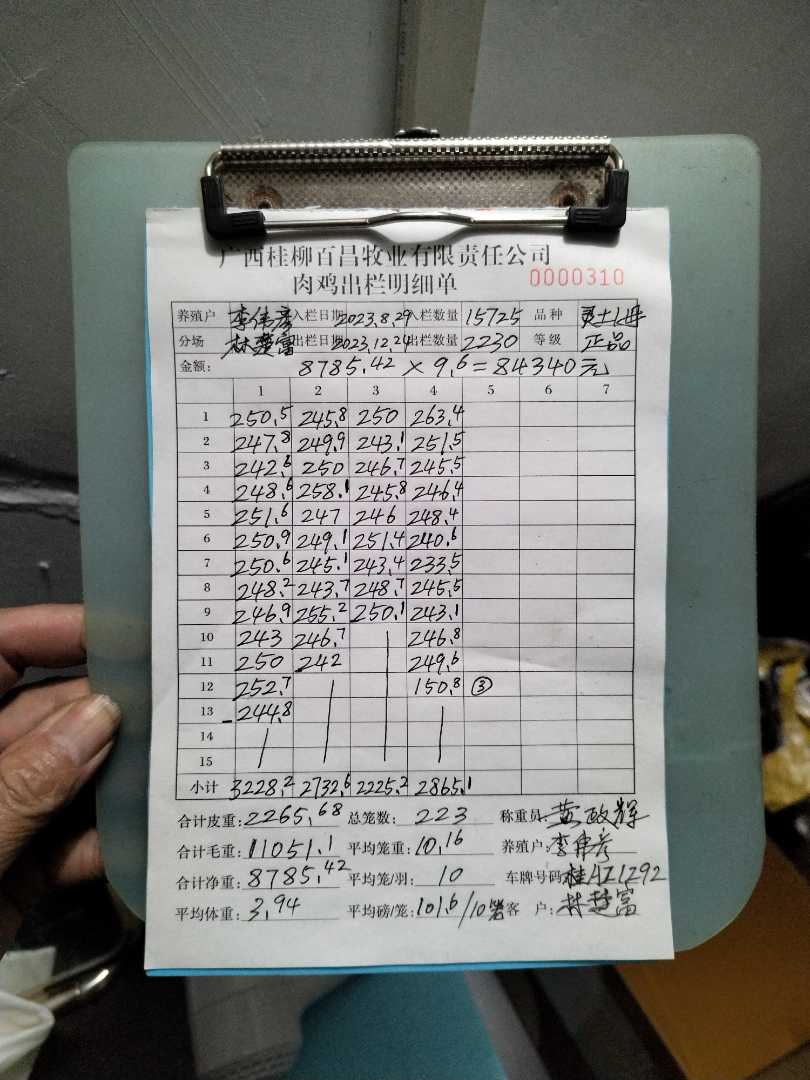 广西桂柳百昌牧业有限责任公司
肉鸡出栏明细单 0000310
养殖户 李伟彦 入栏日期 2023.8.29 入栏数量 15725 品种
分场 林楚富 出栏日期 2023.12.24 出栏数量 2230 等级 正品
金额: 8785.42 × 9.6 = 84340元
1 2 3 4 5 6 7
1 250.5 245.8 250 263.4
2 247.8 249.9 243.1 251.5
3 242.6 250 246.7 245.5
4 248.6 258.1 245.8 246.4
5 251.6 247 246 248.4
6 250.9 249.1 251.4 240.6
7 250.6 245.1 243.4 233.5
8 248.2 243.7 248.7 245.5
9 246.9 255.2 250.1 243.1
10 243 246.7 246.8
11 250 242 249.6
12 252.7 150.8 ③
13 244.8
14
15
小计 3228.2 2732.6 2225.2 2865.1
合计皮重: 2265.68 总笼数: 223 称重员: 黄政辉
合计毛重: 11051.1 平均笼重: 10.16 养殖户: 李伟彦
合计净重: 8785.42 平均笼/羽: 10 车牌号码: 桂AZ1292
平均体重: 3.94 平均磅/笼: 101.6/10笼 客 户: 林楚富